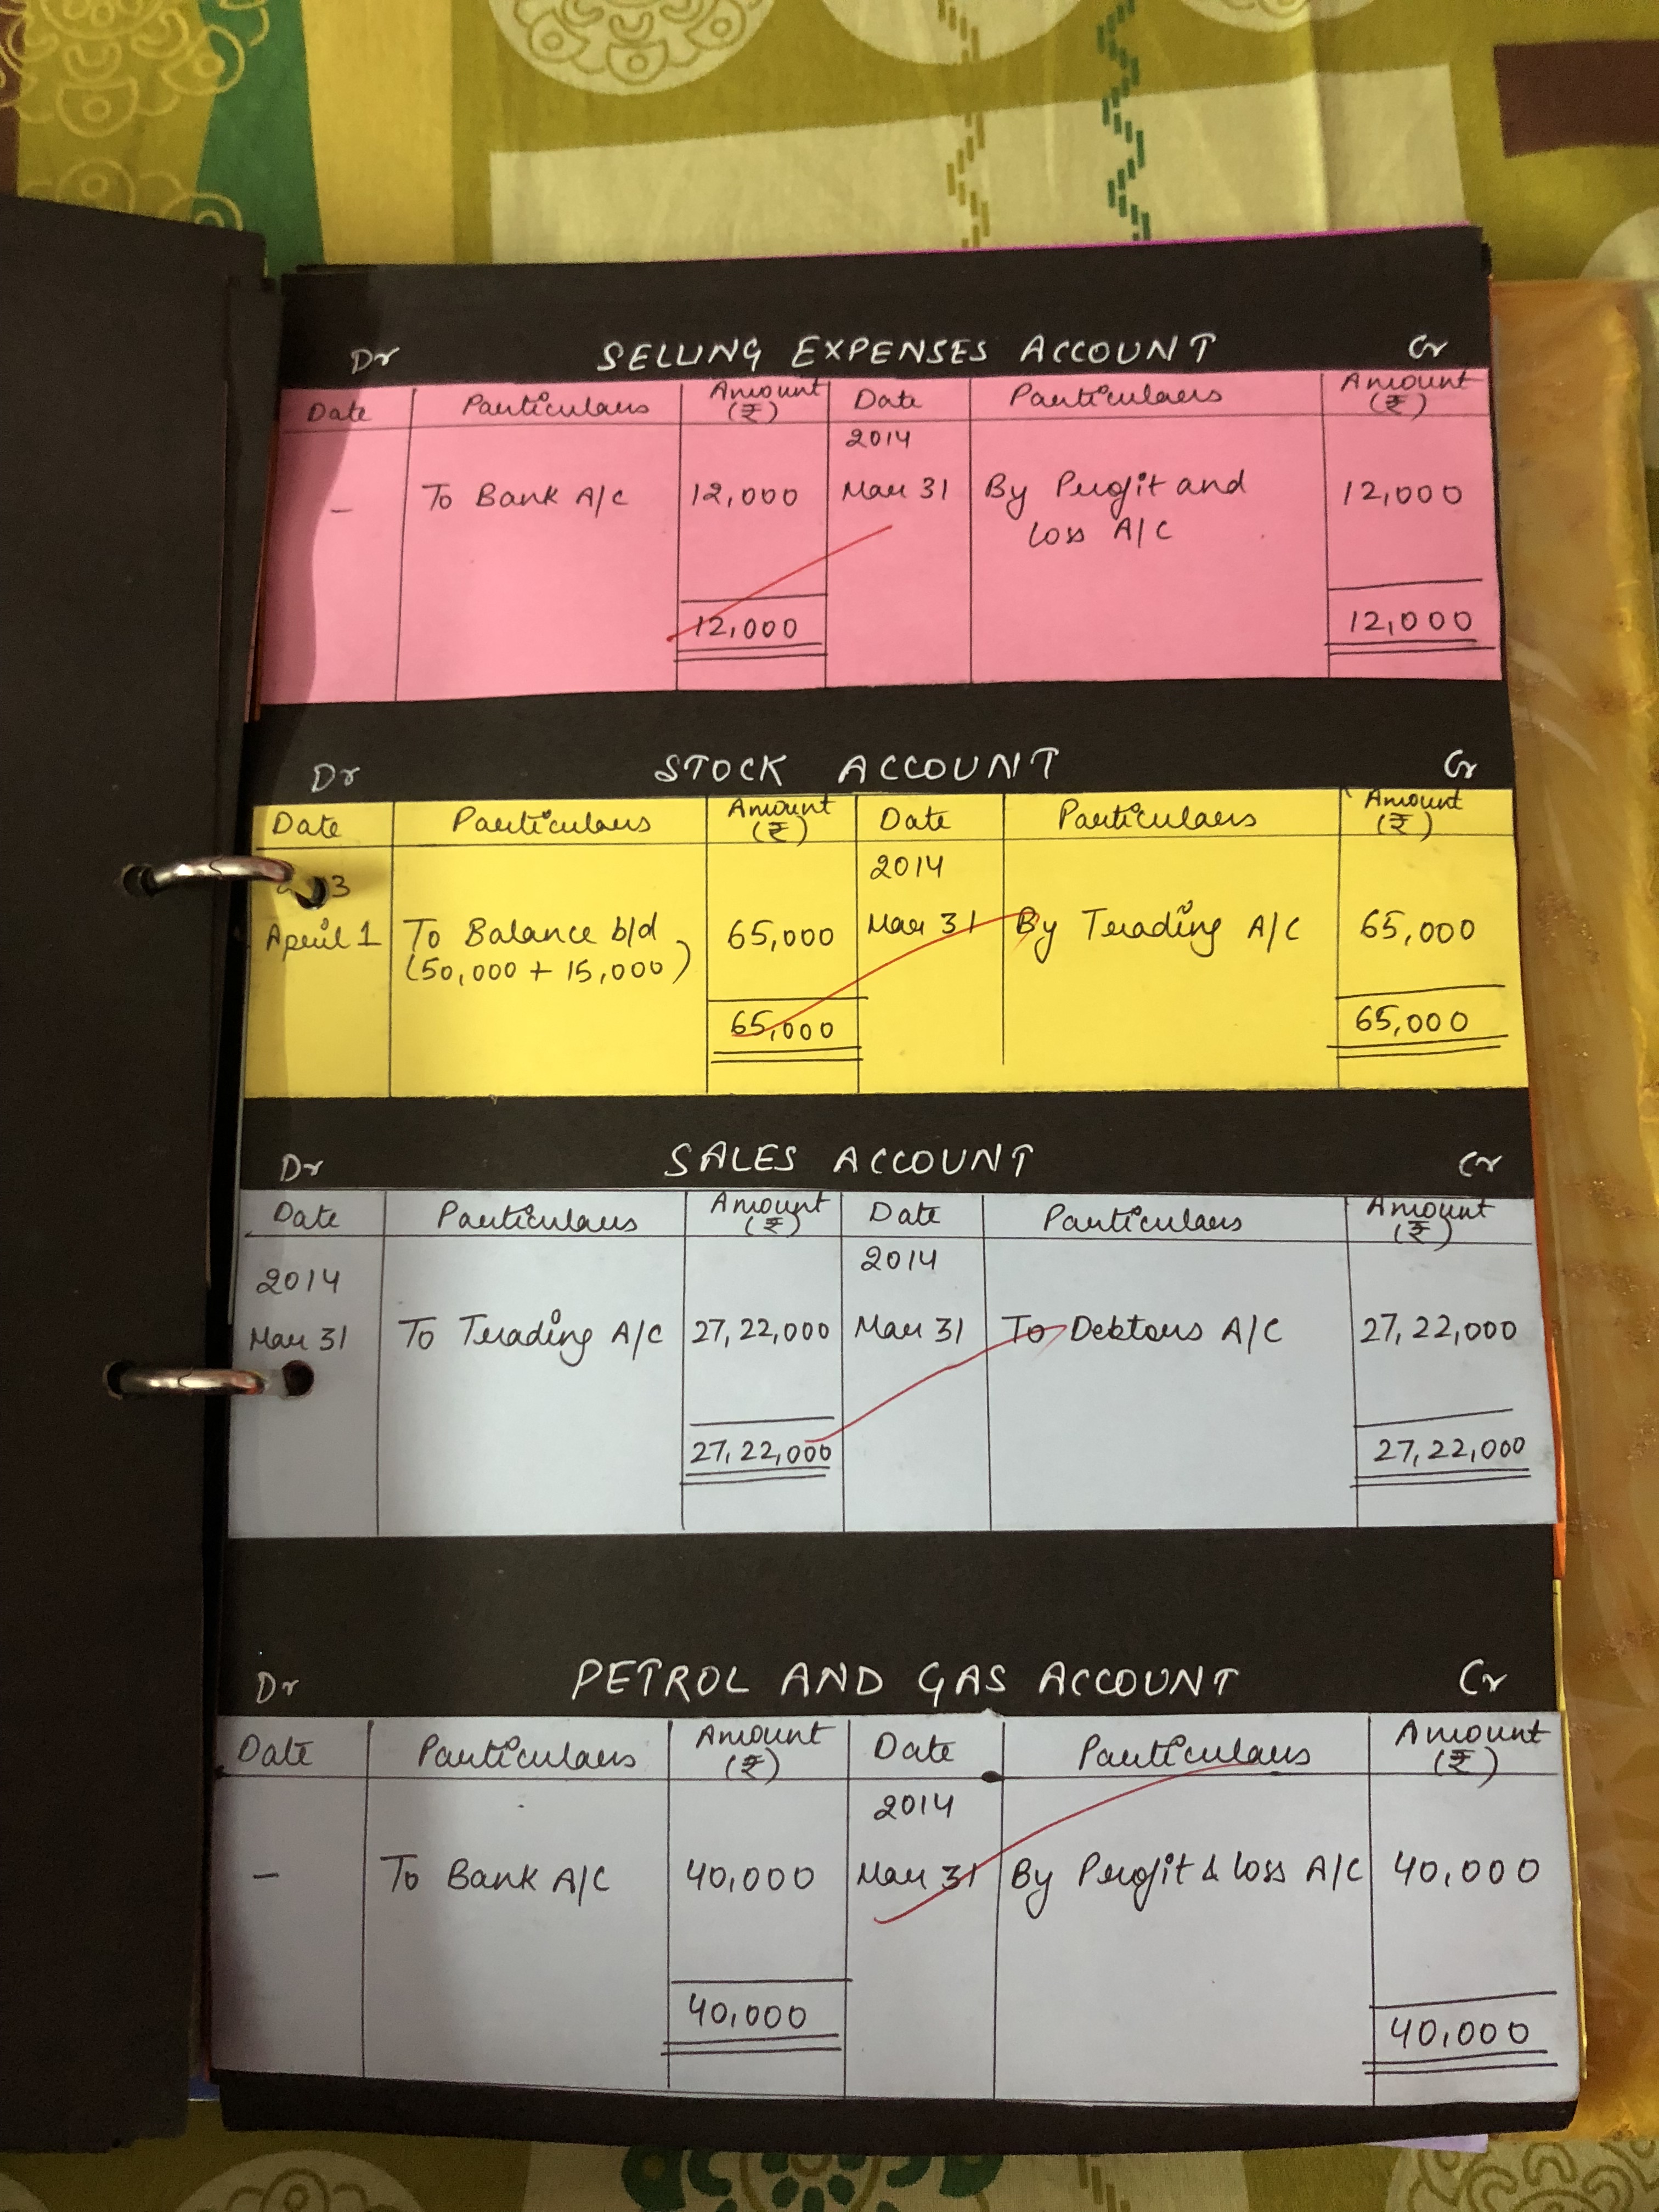 Dr SELLING EXPENSES ACCOUNT Cr
Date Particulars Amount (₹) Date Particulars Amount (₹)
2014
– To Bank A/C 12,000 Mar 31 By Profit and 12,000
Loss A/C
12,000 12,000
Dr STOCK ACCOUNT Cr
Date Particulars Amount (₹) Date Particulars Amount (₹)
2014
April 1 To Balance b/d 65,000 Mar 31 By Trading A/C 65,000
(50,000 + 15,000)
65,000 65,000
Dr SALES ACCOUNT Cr
Date Particulars Amount (₹) Date Particulars Amount (₹)
2014 2014
Mar 31 To Trading A/C 27,22,000 Mar 31 To Debtors A/C 27,22,000
27,22,000 27,22,000
Dr PETROL AND GAS ACCOUNT Cr
Date Particulars Amount (₹) Date Particulars Amount (₹)
2014
– To Bank A/C 40,000 Mar 31 By Profit & loss A/C 40,000
40,000 40,000